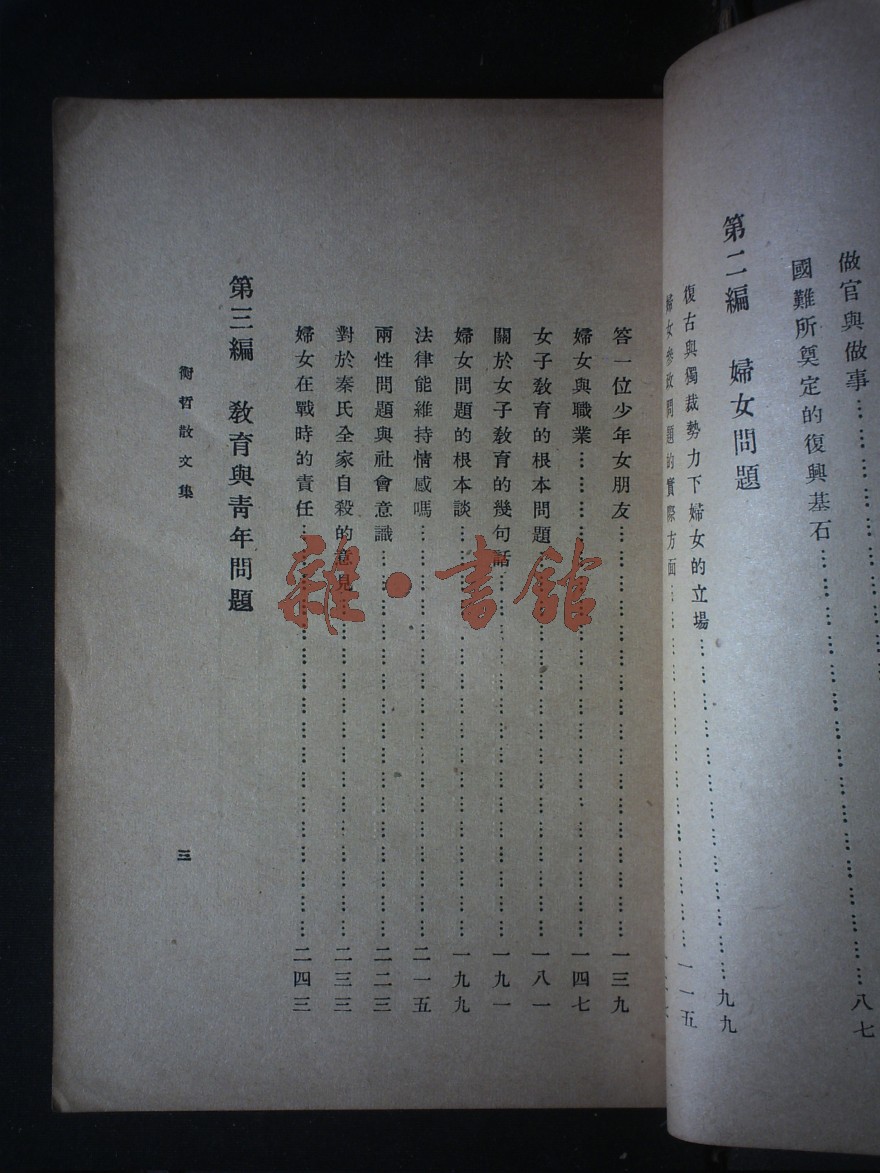 做官與做事……………………
國難所奠定的復興基石……………………八七
第二編　婦女問題
復古與獨裁勢力下婦女的立場……………………九九
婦女參政問題的實際方面……………………一一五
答一位少年女朋友……………………一三九
婦女與職業……………………一四七
女子教育的根本問題……………………一八一
關於女子教育的幾句話……………………一九一
婦女問題的根本談……………………一九九
法律能維持情感嗎……………………二一五
兩性問題與社會意識……………………二二三
對於秦氏全家自殺的意見……………………二三三
婦女在戰時的責任……………………二四三
第三編　教育與青年問題
衡哲散文集
三
雜·書館